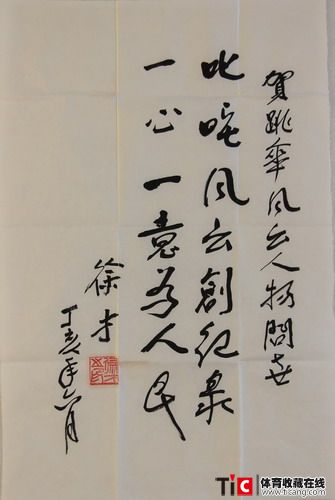 賀跳傘风云人物問世
叱咤风云創纪录
一心一意为人民
徐才
丁亥年六月
TiC 体育收藏在线
www.ticang.com